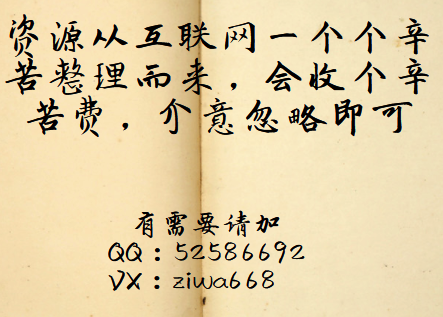 资源从互联网一个个辛
苦整理而来，会收个辛
苦费，介意忽略即可
有需要请加
QQ：52586692
VX：ziwa668